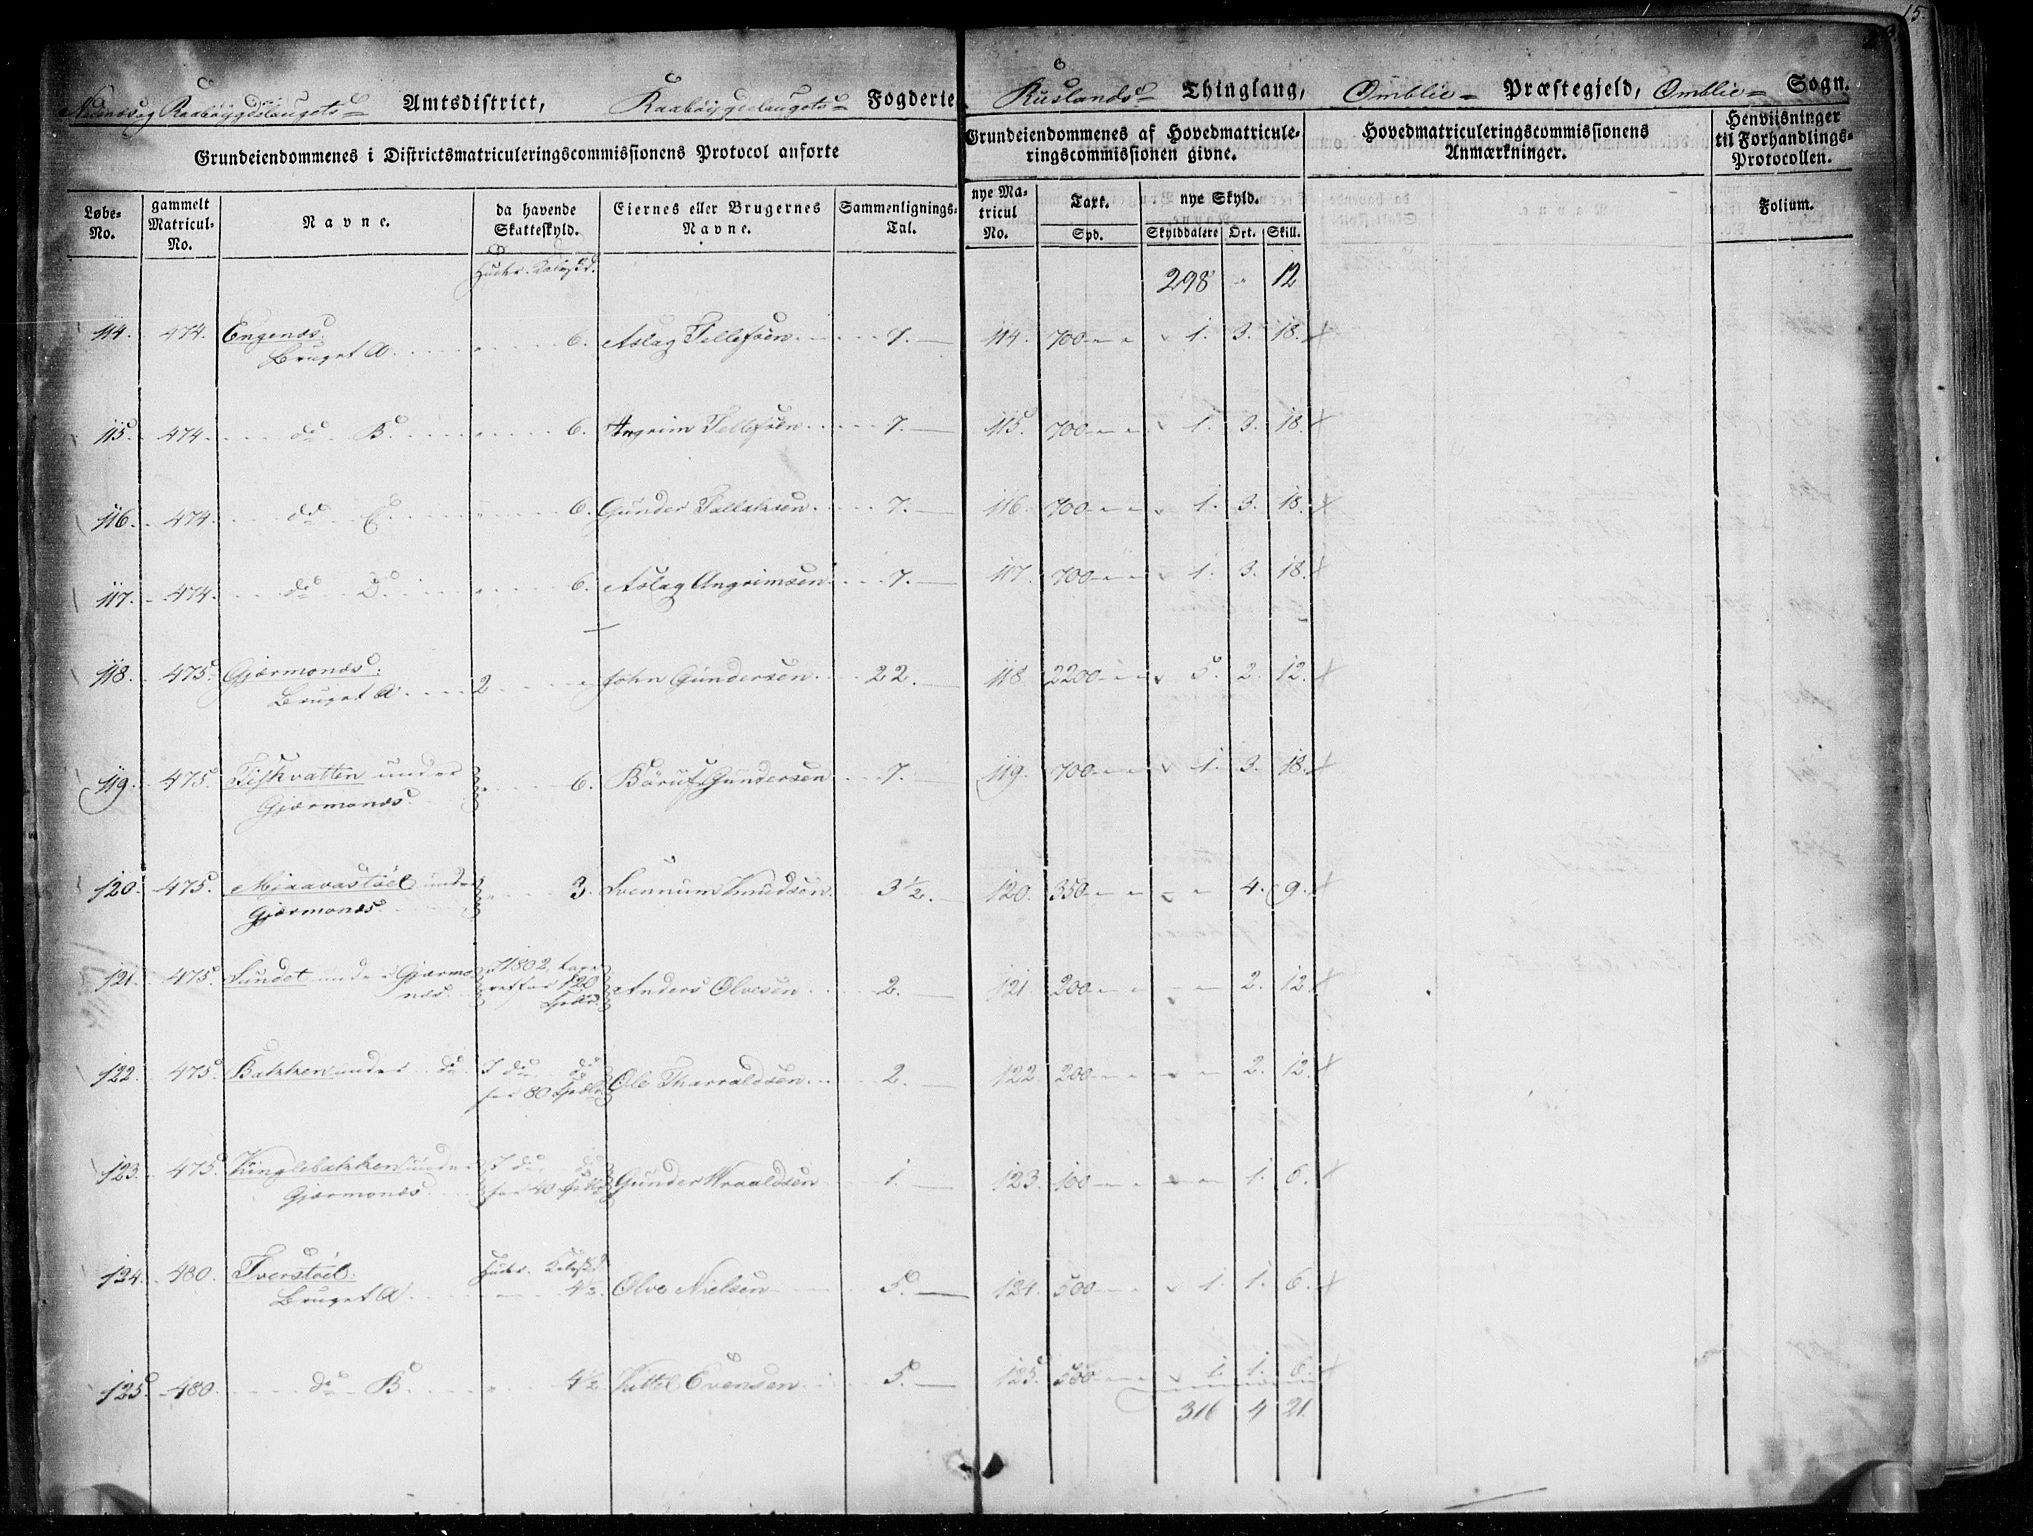 15.
Nedenæs og Raabøygdelaugets Amtsdistrict, Raabøygdelaugets Fogderie Ruslands Thinglaug, Omblie Præstegjeld, Omblie Sogn.
Grundeiendommenes i Districtsmatriculeringscommissionens Protocol anførte
Grundeiendommenes af Hovedmatricule-
ringscommissionen givne.
Hovedmatriculeringscommissionens
Anmærkninger.
Henviisninger
til Forhandlings-
Protocollen.
Løbe-
No.
gammelt
Matricul-
No.
Navne.
da havende
Skatteskyld.
Eiernes eller Brugernes
Navne.
Sammenlignings-
Tal.
nye Ma-
tricul
No.
Taxt.
Spd.
nye Skyld.
Skylddalere Ort. Skill.
Folium.
Huder. Kalvsk.
298 " 12
114. 474. Engenæs: 6. Aslag Tellefsen 7. 114. 700 1. 3. 18.
Bruget A.
115. 474. do B. 6. Angrim Tellefsen 7. 115. 700 1. 3. 18.
116. 474. do C. 6. Gunder Tallaksen 7. 116. 700 1. 3. 18.
117. 474. do D. 6. Aslag Angrimsen 7. 117. 700 1. 3. 18.
118. 475. Gjærmonæs: 2 John Gundersen 22. 118. 2200 5. 2. 12.
Bruget A.
119. 475. Fiskvatten under 6. Børuf Gundersen 7. 119. 700 1. 3. 18.
Gjærmonæs.
120. 475. Mjaavastøel under 3. Svennum Knudsen 3½. 120. 350 " 4. 9.
Gjærmonæs.
121. 475. Sundet under Gjærmo- I 1802, taxe- Anders Olvesen 2. 121 200 " 2. 12.
næs. ret for 120
Spdlr.
122. 475. Bakken under do I do do Ole Tharraldsen 2. 122. 200 " 2. 12.
for 80 Spdlr
123. 475. Kinglebakken under I do do Gunder Wraaldsen 1. 123. 100 " 1. 6.
Gjærmonæs. for 40 Spdlr
124. 480. Tverstøel: Huder. Kalvsk.
Bruget A. 4½. Olve Nielsen 5. 124. 500 1. 1. 6.
125. 480. do B. 4½ Kittel Evensen 5. 125. 500 1. 1. 6.
316 4 21.